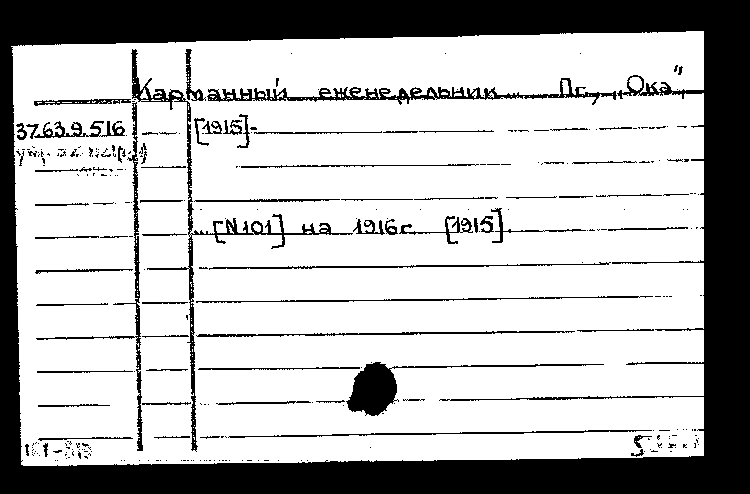 Карманный еженедельник... Пг., „Ока",
37.63.9.516 [1915]-
...[N101] на 1916г [1915].